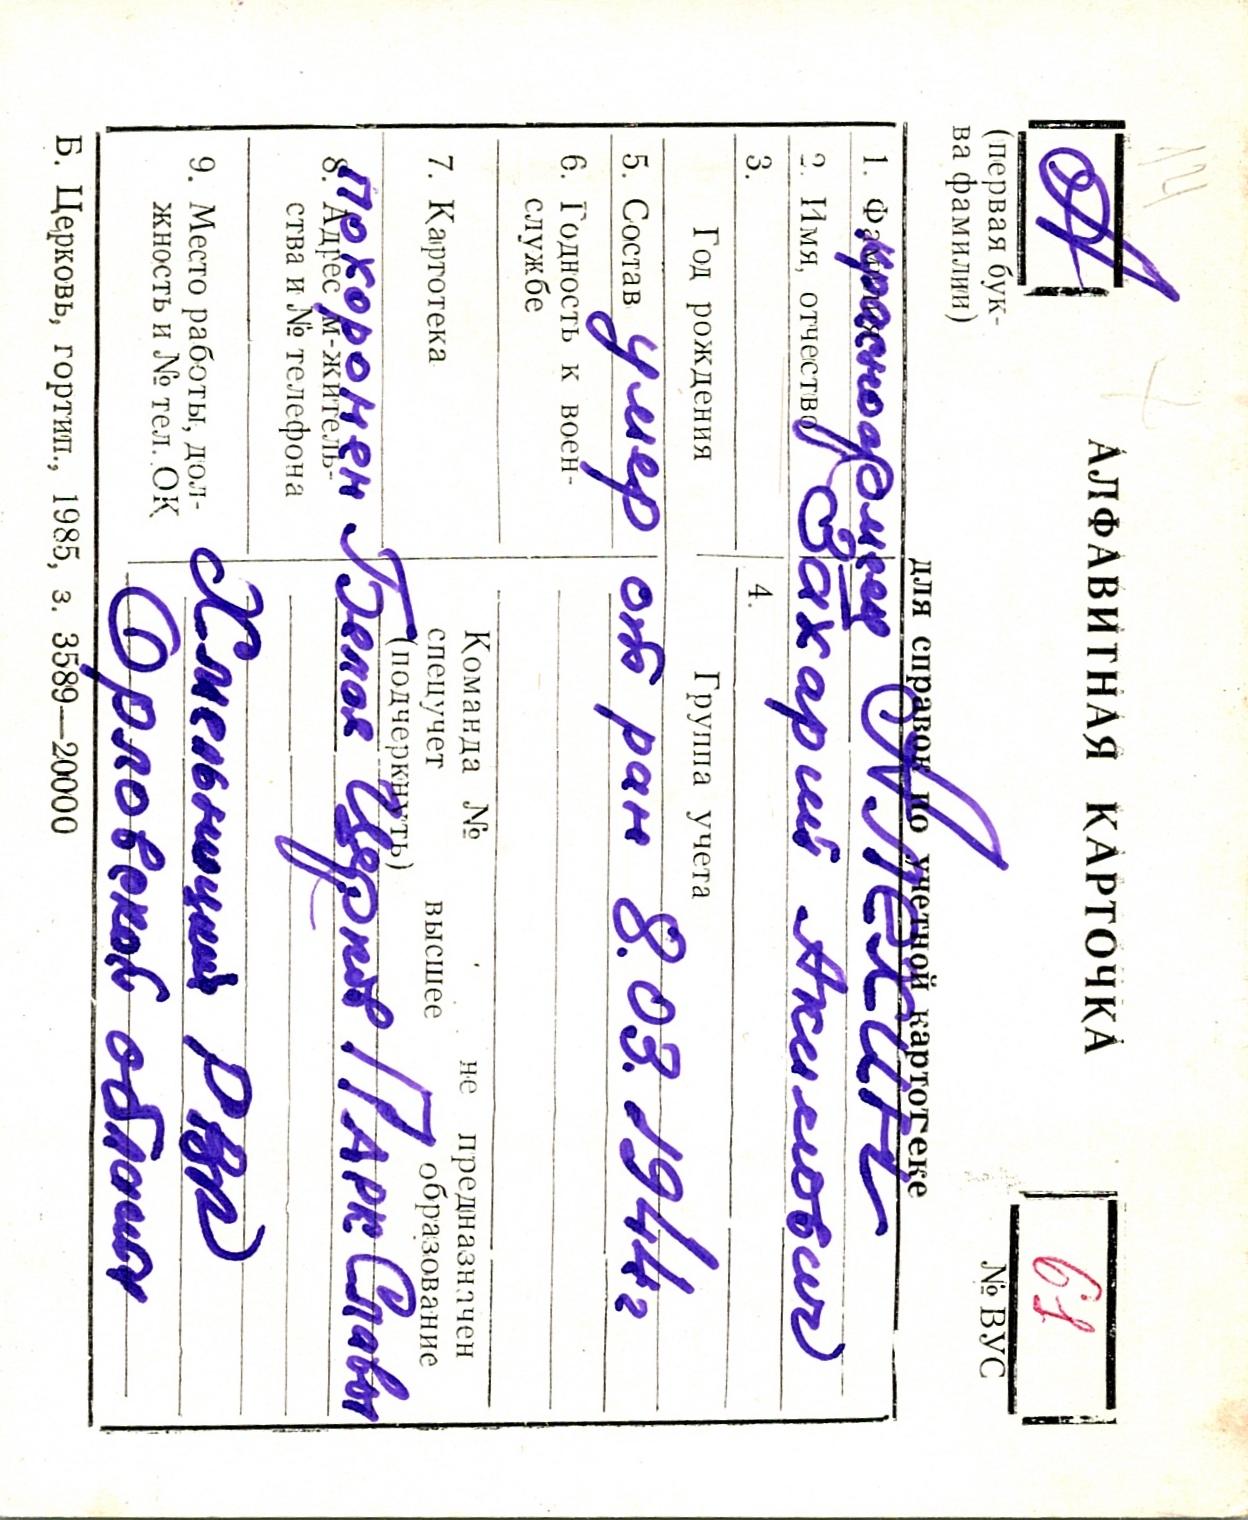 А
(первая бук-
ва фамилии)
АЛФАВИТНАЯ КАРТОЧКА
для справок по учетной картотеке
61
№ ВУС
1. Фамилия красноармеец АЛЕХИН
2. Имя, отчество Захарий Акимович
3.
4.
Год рождения
Группа учета
5. Состав умер от ран 8.03.1944г
6. Годность к воен-
службе
7. Картотека
Команда № не предназначен
спецучет высшее образование
(подчеркнуть)
похоронен Белая Церковь Парк Славы
8. Адрес м-житель-
ства и № телефона
9. Место работы, дол-
жность и № тел. ОК
Хмельницкий РВК
Орловской области
Б. Церковь, гортип., 1985, з. 3589—20000